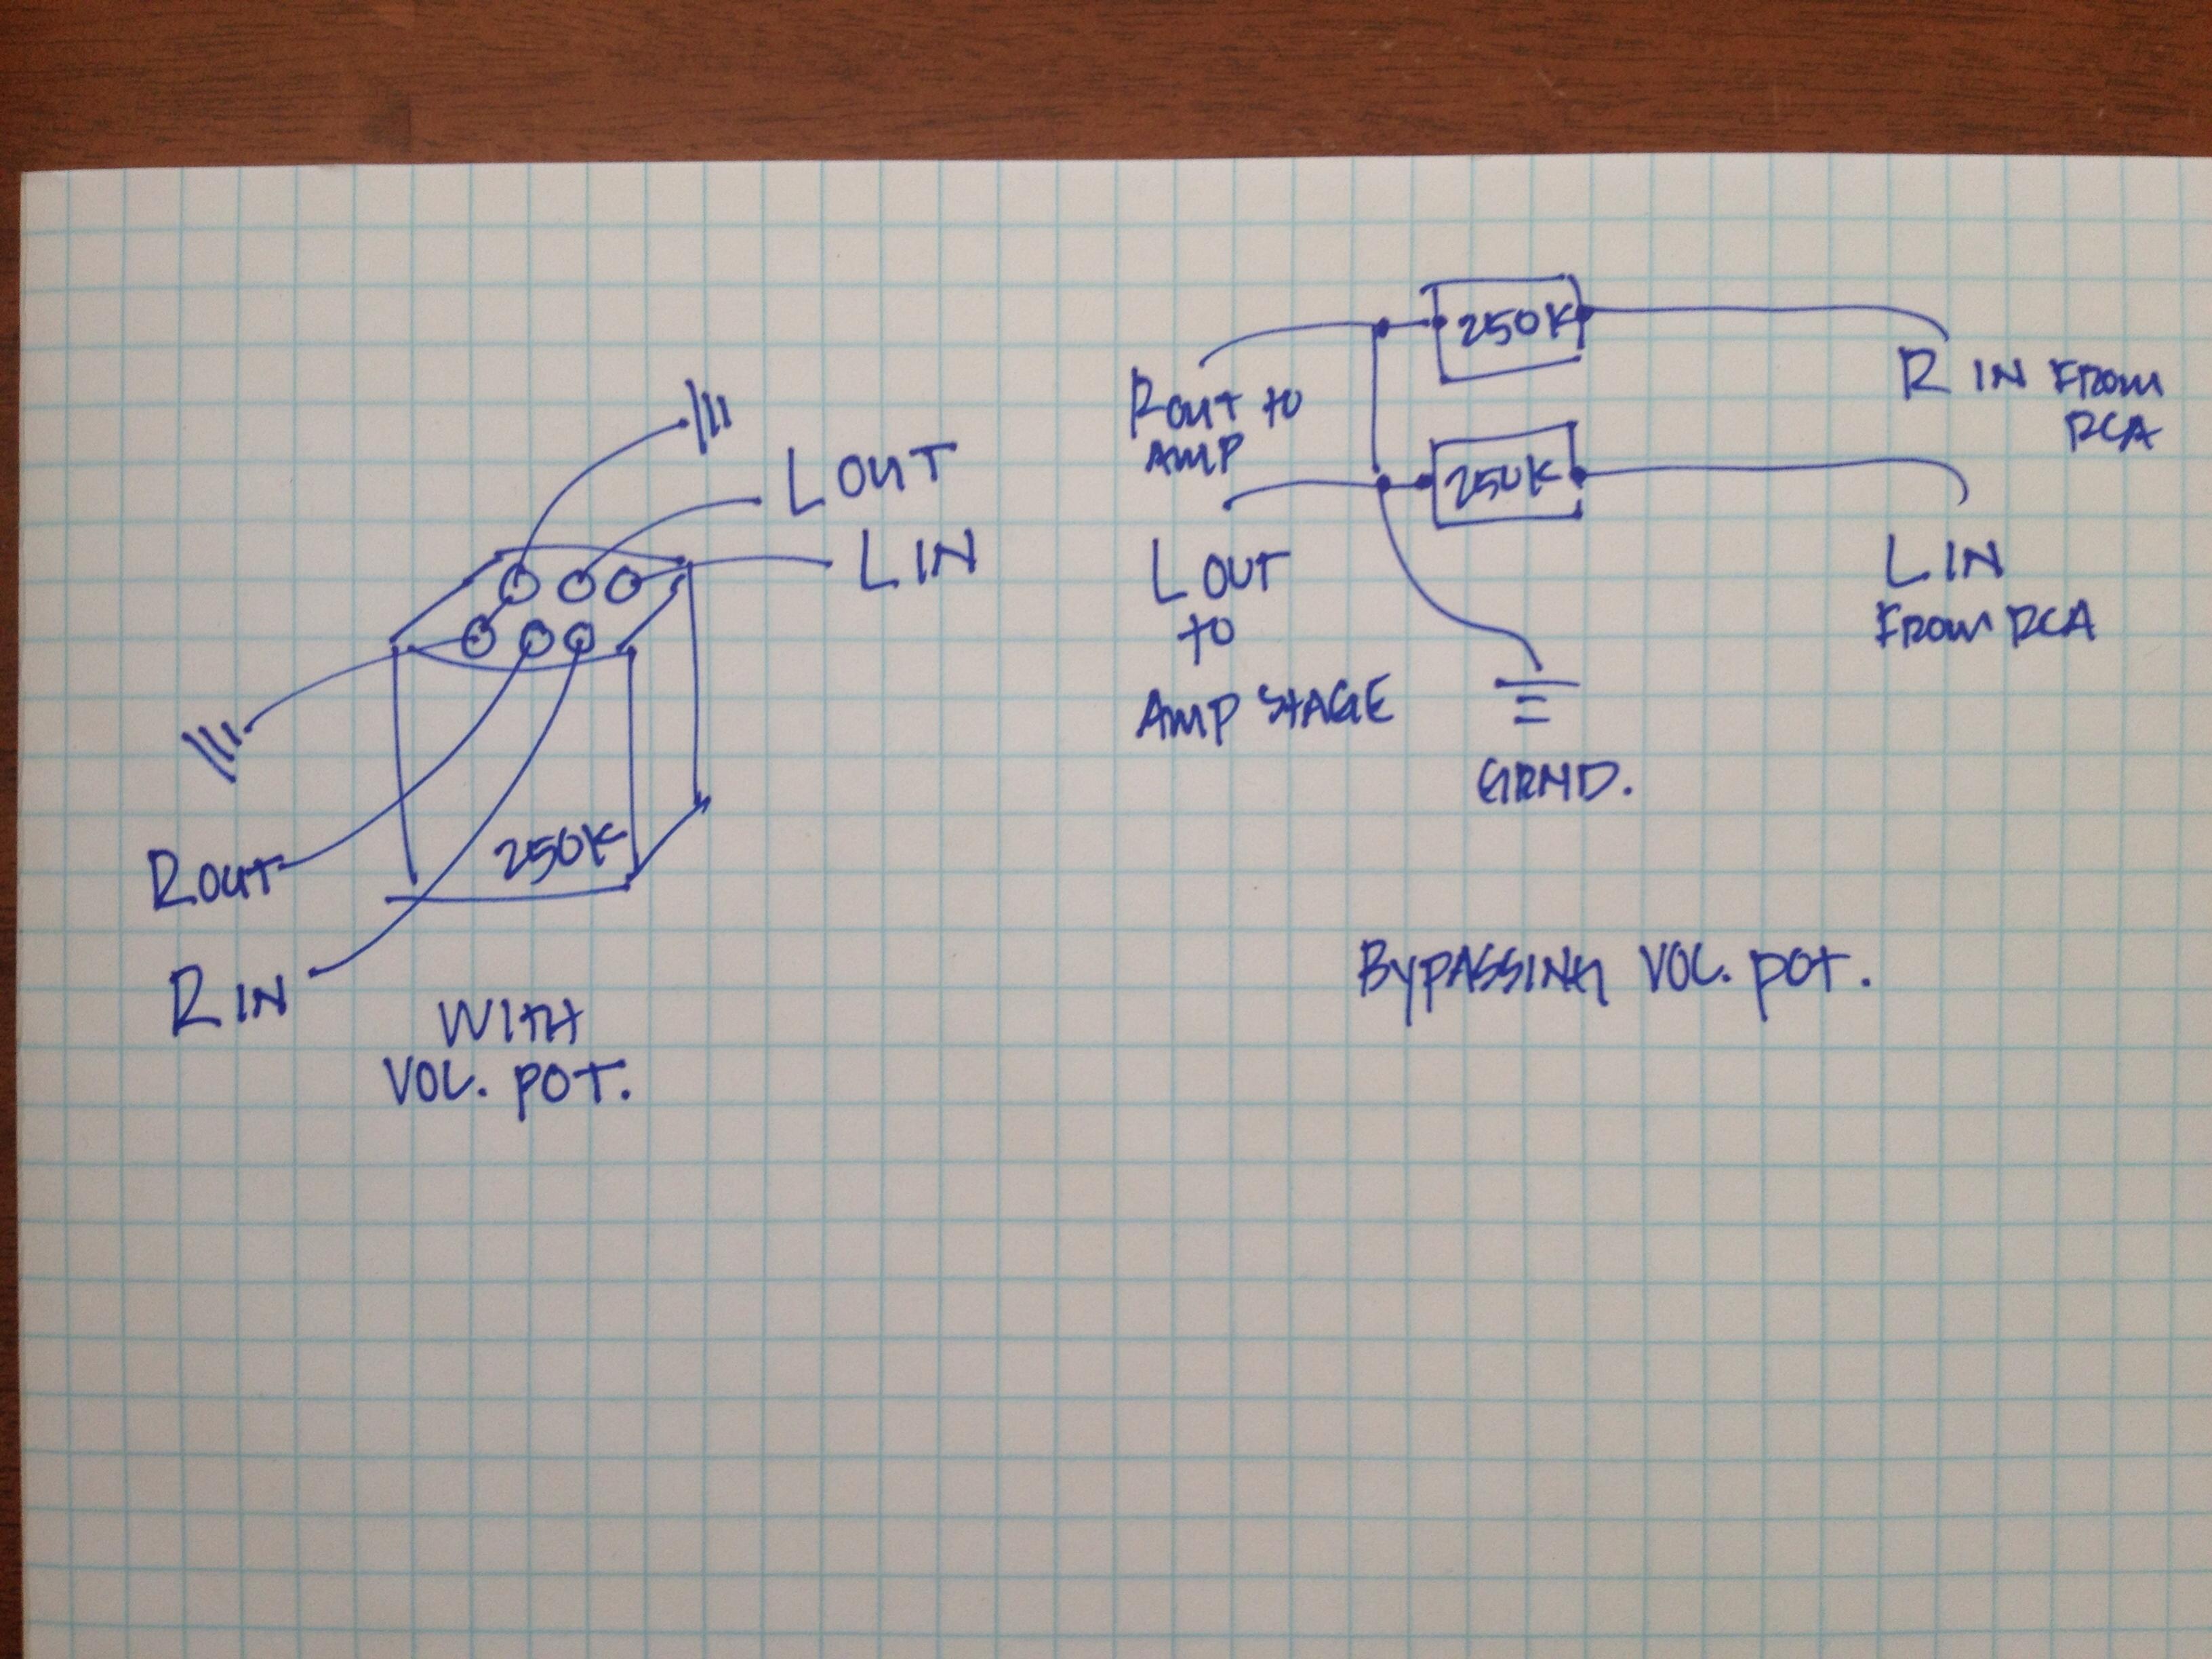 L OUT
L IN
R OUT
R IN
250K
WITH
VOL. POT.
250K
250K
R OUT to
AMP
L OUT
to
AMP STAGE
R IN FROM
RCA
L IN
FROM RCA
GRND.
BYPASSING VOL. POT.